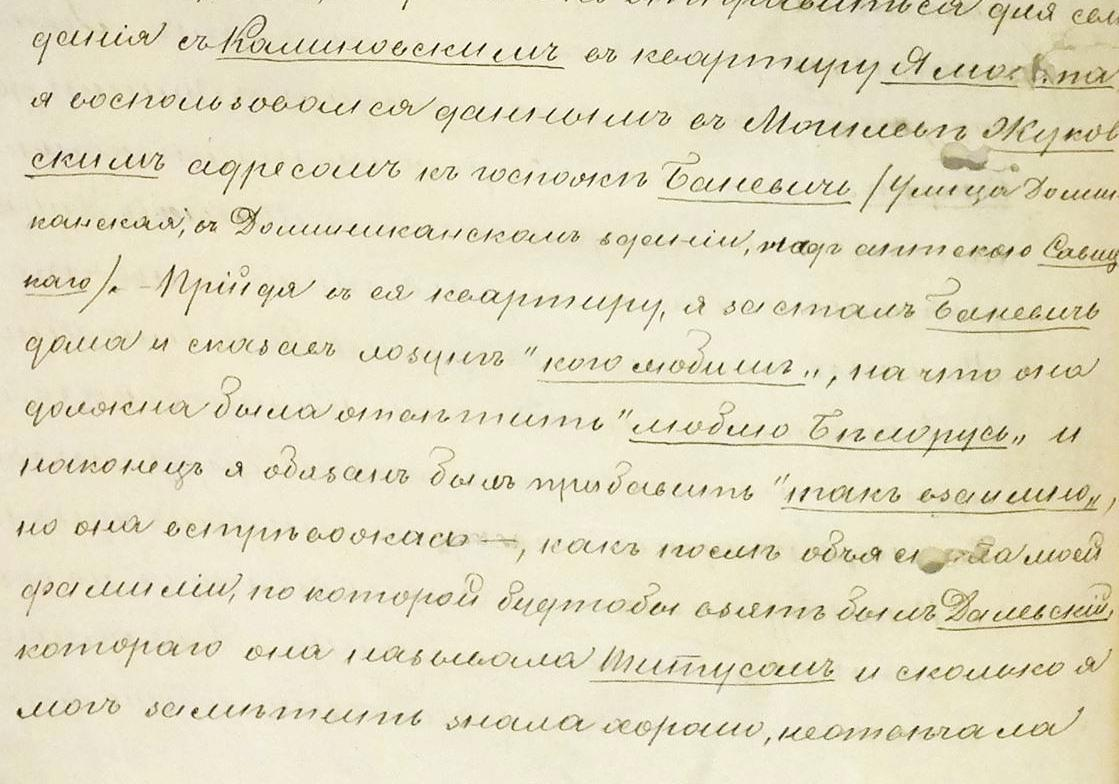 отправиться для сви
данія съ Калиновскимъ въ квартиру Ямонта
я воспользовался даннымъ въ Могилевѣ Жуков
скимъ адресомъ къ госпожѣ Баневичъ /Улица Домини
канская, въ Доминиканскомъ зданіи, надъ аптекою Савиц
каго). – Прійдя въ ея квартиру, я засталъ Баневичъ
дома и сказавъ лозунгъ "кого любишь„, на что она
должна была отвѣтить "люблю Бѣлорусь„ и
наконецъ я обязанъ былъ прибавить "такъ взаимно„,
но она встрѣвожась —, какъ послѣ объяснила моей
фамиліи, по которой будтобы взятъ былъ Далевскій,
котораго она называла Титусомъ и сколько я
могъ замѣтить знала хорошо, неотвѣчала